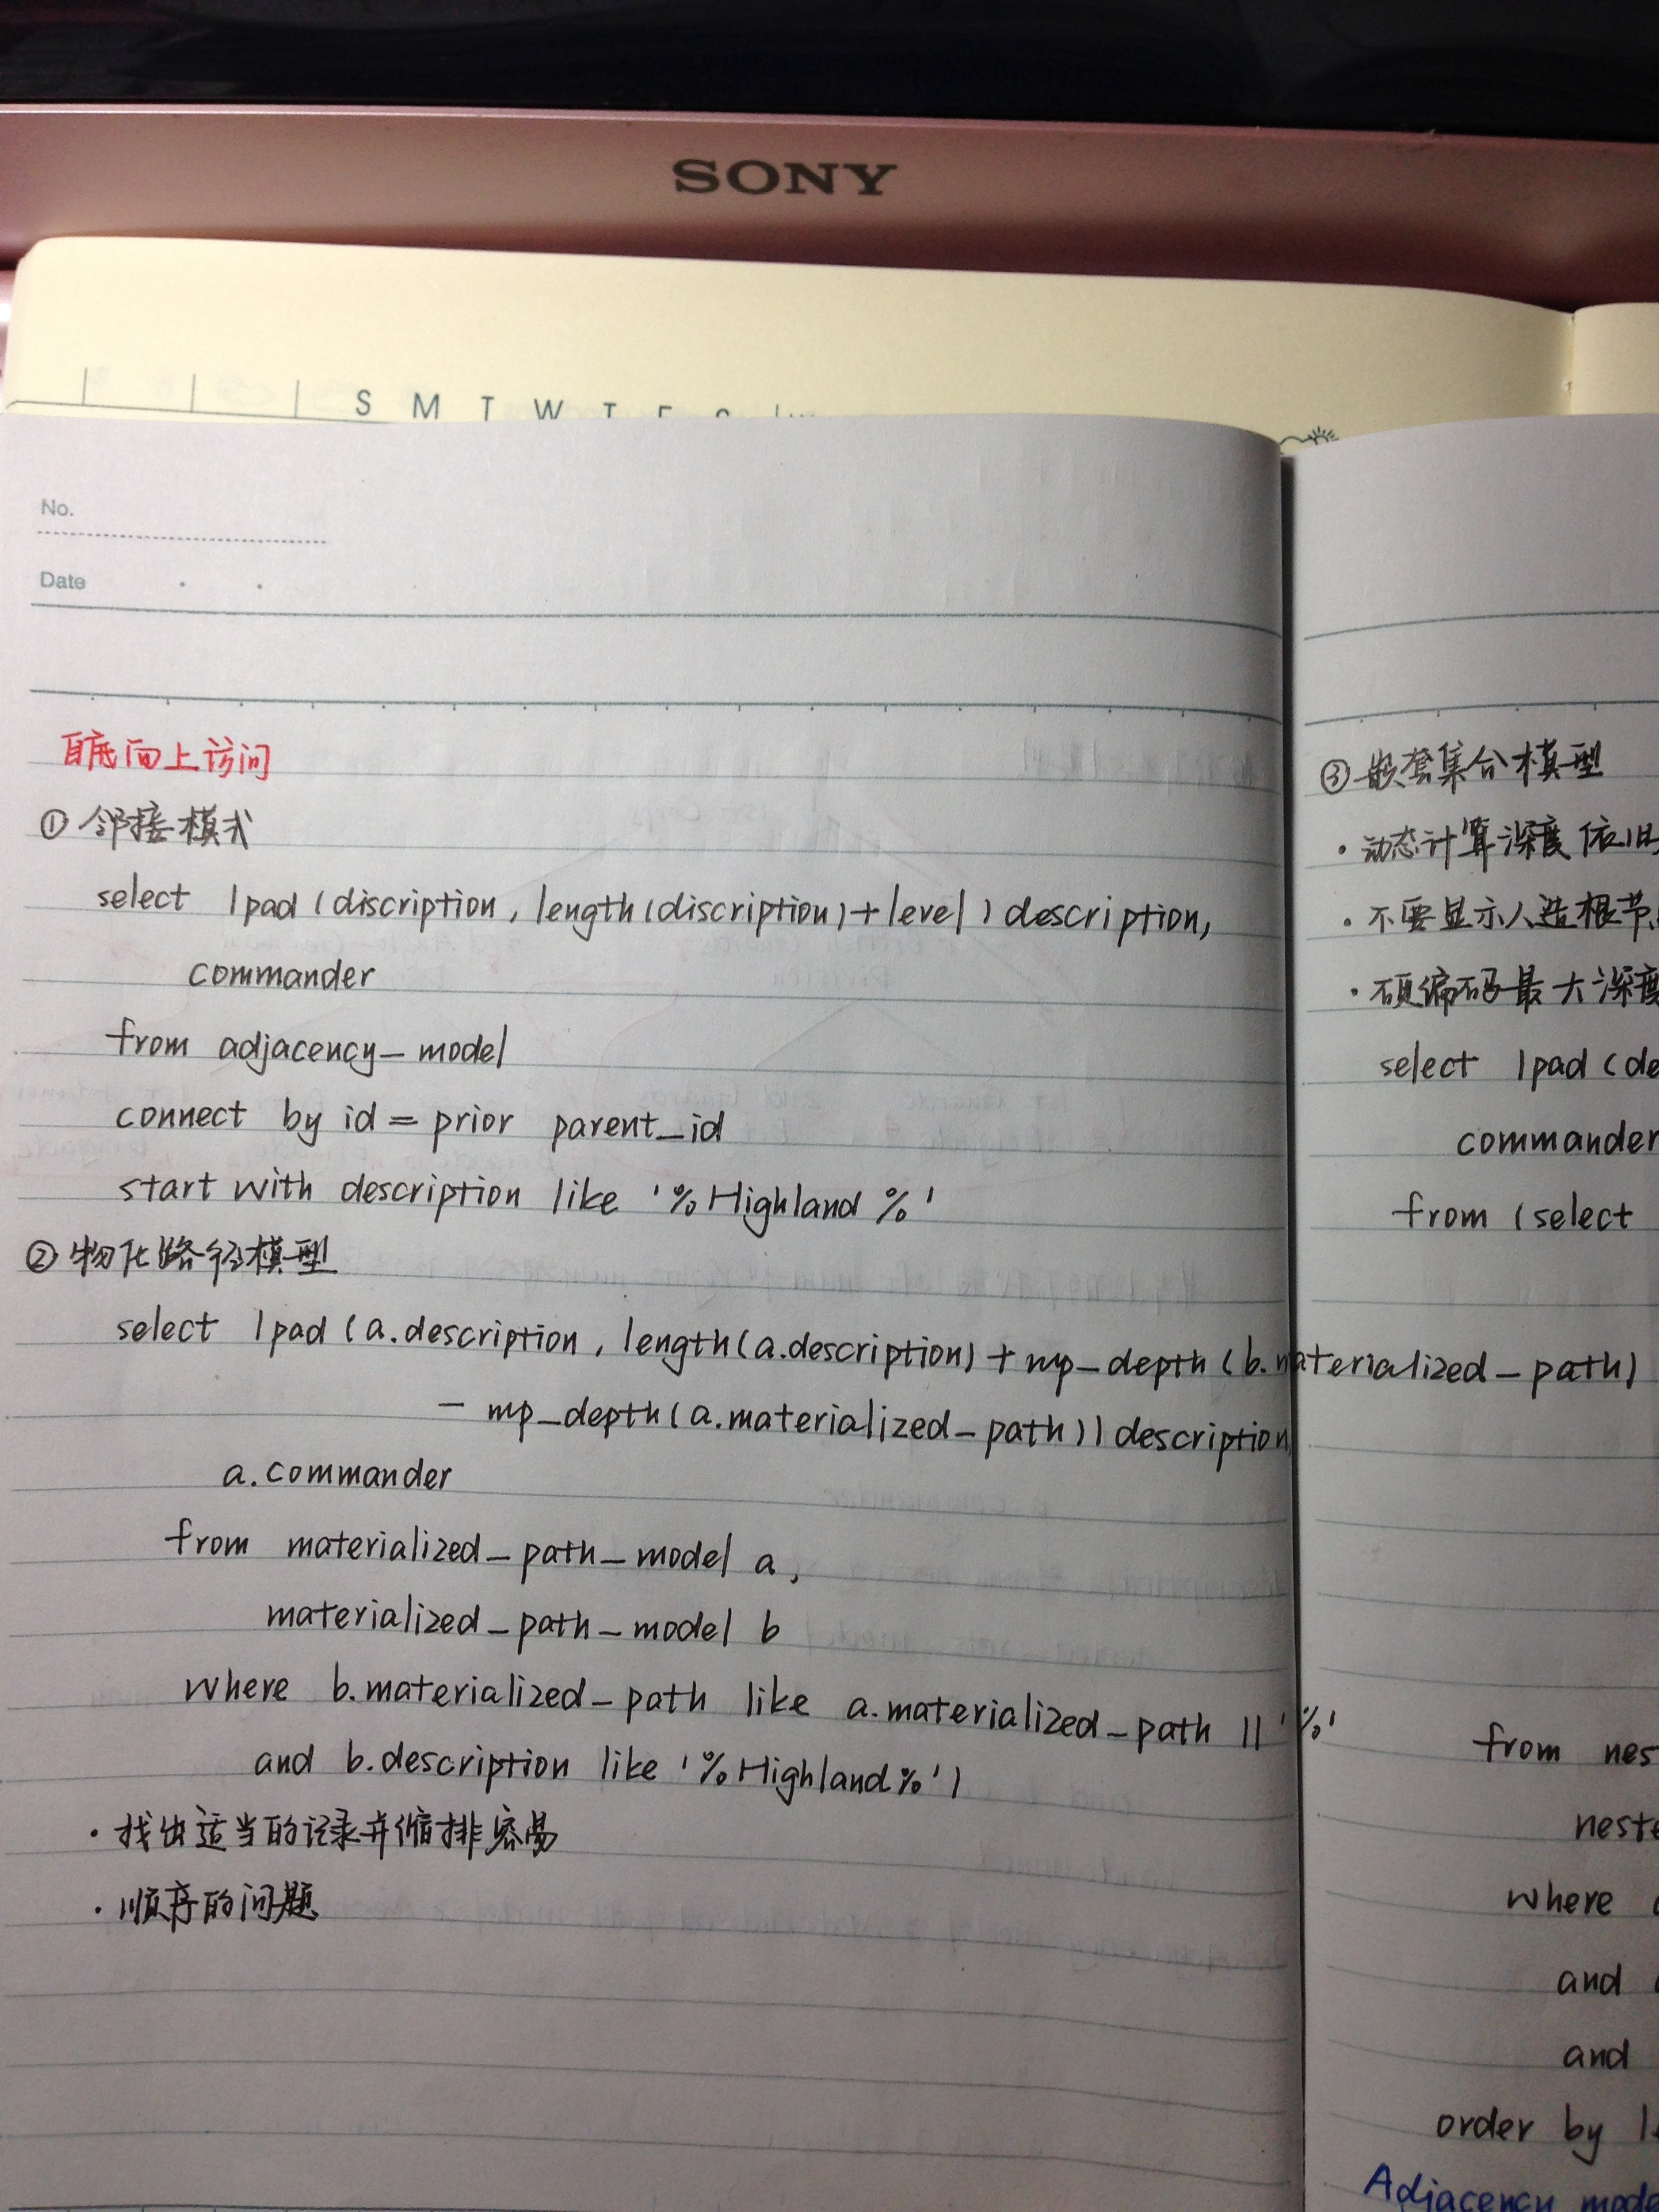 SONY
S M T W T F S
No.
Date
自底而上访问
① 邻接模式
select lpad (discription, length(discription)+level) description,
commander
from adjacency_model
connect by id = prior parent_id
start with description like '%Highland%'
② 物化路径模型
select lpad (a.description, length(a.description) + mp_depth (b.materialized_path)
- mp_depth(a.materialized_path)) description
a.commander
from materialized_path_model a,
materialized_path_model b
where b.materialized_path like a.materialized_path || '%'
and b.description like '%Highland%')
· 找出适当的记录并缩排容易
· 顺序的问题
③ 嵌套集合模型
· 动态计算深度依旧
· 不要显示人造根节
· 硬编码最大深度
select lpad (de
commander
from (select
from nes
neste
where
and
and
order by l
Adjacency mode